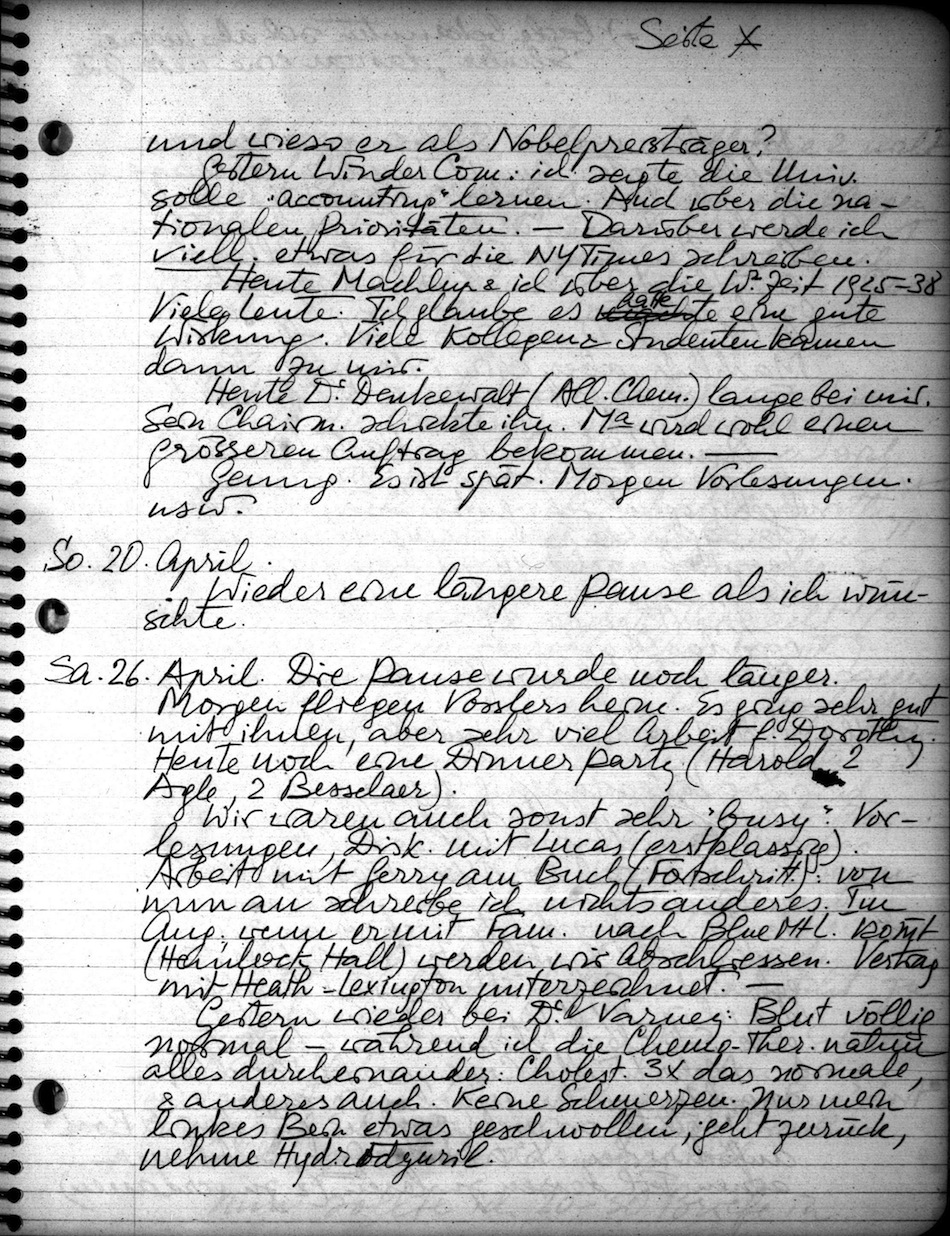 Seite X
und wieso er als Nobelpreisträger?
Gestern Winder Com: ich sagte die Univ.
solle "accounting" lernen. Auch über die na-
tionalen Prioritäten. — Darüber werde ich
viell. etwas für die NYTimes schreiben.
Heute Machlup & ich über die Wr. Zeit 1925-38
Viele Leute. Ich glaube es hatte eine gute
Wirkung. Viele Kollegen & Studenten kamen
dann zu mir.
Heute Dr. Denkewalt (All. Chem.) lange bei mir.
Sein Chairm. schickte ihn. Ma wird wohl einen
grösseren Auftrag bekommen. —
Genug. Es ist spät. Morgen Vorlesungen.
usw.
So. 20. April.
Wieder eine längere Pause als ich wün-
schte.
Sa. 26. April. Die Pause wurde noch länger.
Morgen fliegen Vosslers heim. Es ging sehr gut
mit ihnen, aber sehr viel Arbeit f. Dorothy.
Heute noch eine Dinner Party (Harold, 2
Agle, 2 Besselaer).
Wir waren auch sonst sehr "busy": Vor-
lesungen, Disk. mit Lucas (erstklassig).
Arbeit mit Gerry am Buch (Fortschritt): von
nun an schreibe ich nichts anderes. Im
Aug. wenn er mit Fam. nach Blue Mt L. kommt
(Hemlock Hall) werden wir abschliessen. Vertrag
mit Heath-Lexington unterzeichnet. —
Gestern wieder bei Dr. Varney: Blut völlig
normal – während ich die Chemo-Ther. nahm
alles durcheinander: Cholest. 3x das normale,
& anderes auch. Keine Schmerzen. Nur mein
linkes Bein etwas geschwollen, geht zurück,
nehme Hydrodyuril.